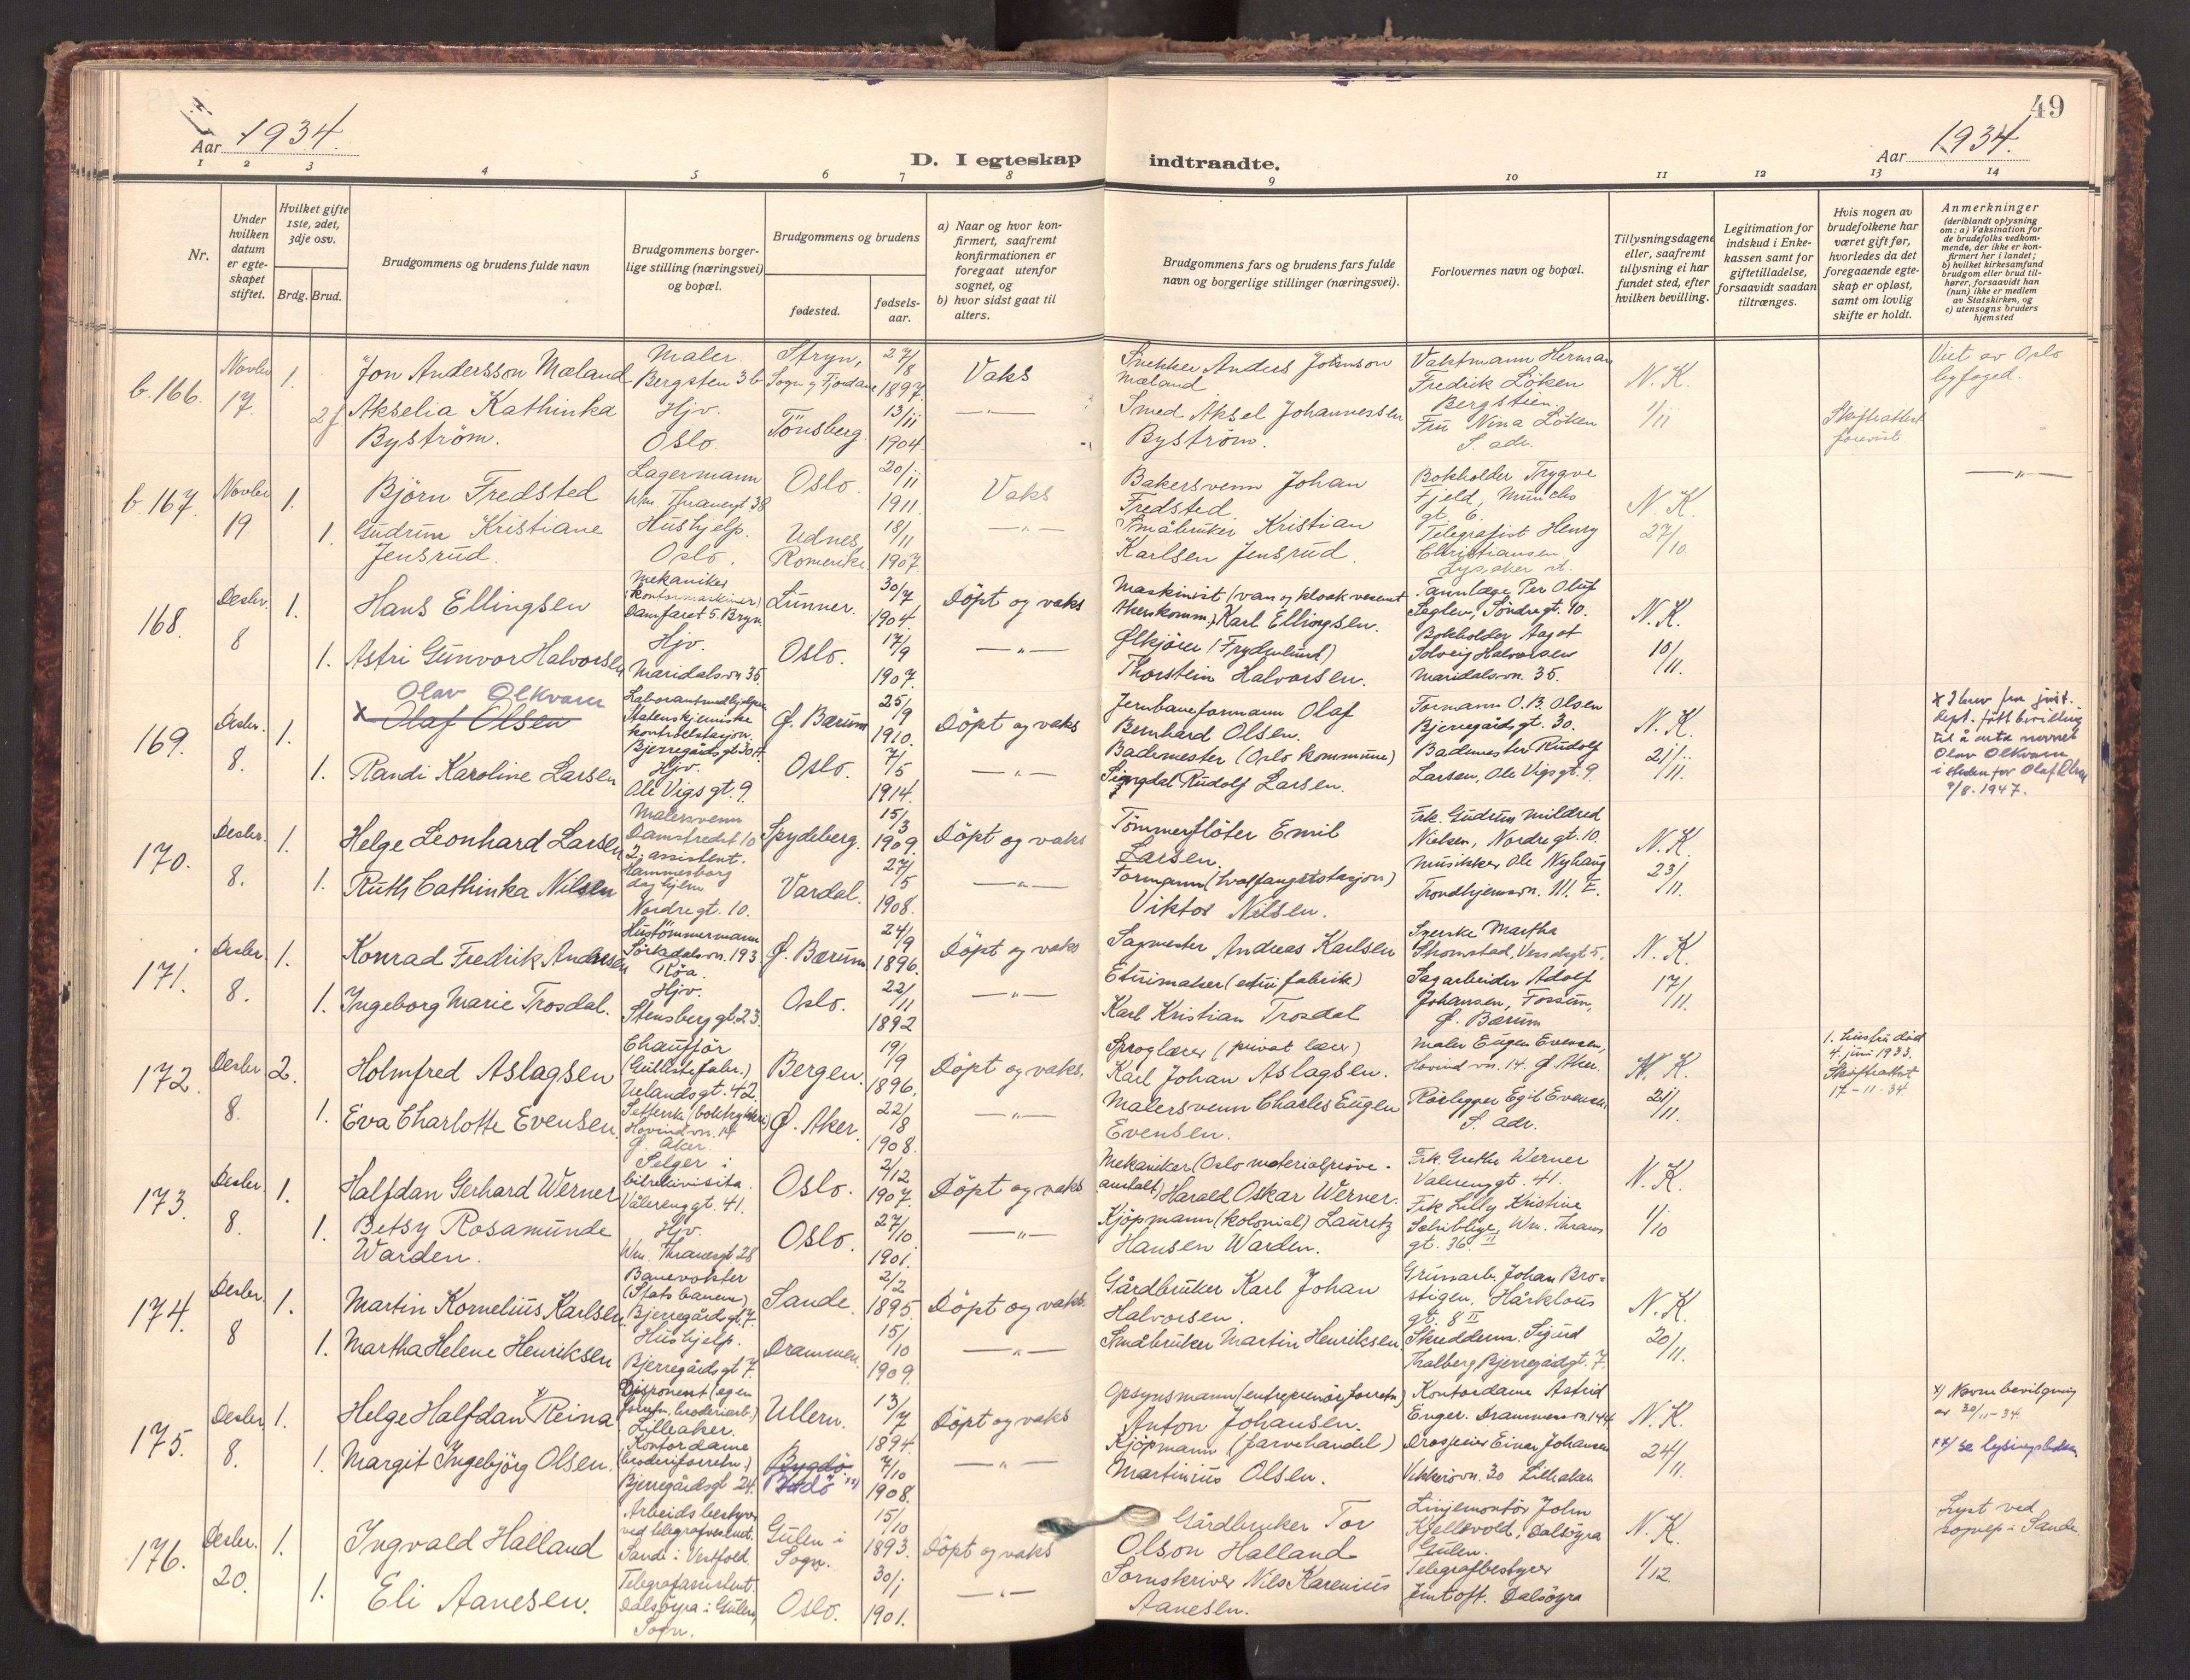 49
Aar 1934.
Aar 1934.
D. I egteskap indtraadte.
1 2 3 4 5 6 7 8 9 10 11 12 13 14
Nr.
Under hvilken datum er egteskapet stiftet.
Hvilket gifte 1ste, 2det, 3dje osv.
Brdg. Brud.
Brudgommens og brudens fulde navn
Brudgommens borgerlige stilling (næringsvei) og bopæl.
Brudgommens og brudens
fødested.
fødselsaar.
a) Naar og hvor konfirmert, saafremt konfirmationen er foregaat utenfor sognet, og
b) hvor sidst gaat til alters.
Brudgommens fars og brudens fars fulde navn og borgerlige stillinger (næringsvei).
Forlovernes navn og bopæl.
Tillysningsdagene eller, saafremt tillysning ei har fundet sted, efter hvilken bevilling.
Legitimation for indskud i Enkekassen samt for giftetilladelse, forsaavidt saadan tiltrænges.
Hvis nogen av brudefolkene har været gift før, hvorledes da det foregaaende egteskap er opløst, samt om lovlig skifte er holdt.
Anmerkninger
(deriblandt oplysning om: a) Vaksination for de brudefolks vedkommende, der ikke er konfirmert her i landet;
b) hvilket kirkesamfund brudgom eller brud tilhører, forsaavidt han (hun) ikke er medlem av Statskirken, og
c) utensogns bruders hjemsted
b. 166. Novbr 17. 1. Jon Andersson Mæland Maler. Bergstien 3 b Stryn, Sogn og Fjordane 27/8 1897. Vaks Snekker Anders Johanson Mæland Vaktmann Herman Fredrik Löken Bergstien. N. K. 1/11 Viet av Oslo byfoged.
2 f Akselia Kathinka Byström. Hjv. Oslo. Tönsberg. 13/11 1904 —"— Smed Aksel Johannessen Byström. Fru Nina Löken S. adr. Skifteattest forevist
b 167. Novbr 19. 1. Björn Fredsted Lagermann Wm. Thranesgt 38 Oslo. 20/11 1911. Vaks Bakersvenn Johan Fredsted. Bokholder Trygve Fjeld, Munchs gt. 6. N. K. 27/10 —"—
1. Gudrun Kristiane Jensrud. Hushjelp. Oslo. Udnes, Romerike. 18/11 1907. —"— Småbruker Kristian Karlsen Jensrud. Telegrafist Henry Christiansen. Lysaker st.
168. Desbr. 8 1. Hans Ellingsen Mekaniker (kontormaskiner) Damfaret 5. Bryn. Lunner. 30/7 1904. Döpt og vaks Maskinist (van og kloakvesenet Akerskomm.) Karl Ellingsen. Tannlæge Per Oluf Seglen, Söndregt. 10. N. K. 10/11.
1. Astri Gunvor Halvorsen Hjv. Maridalsvn 35. Oslo. 17/9 1907. —"— Ølkjörer (Frydenlund) Thorstein Halvorsen. Bokholder Aagot Solveig Halvorsen Maridalsvn. 35.
169. Desbr. 8. 1. Olav Olkvam x Olaf Olsen Laborantmedhjelper Statens kjemiske kontrolstasjon. Bjerregårdsgt 30 Ø. Bærum 25/9 1910. Döpt og vaks Jernbaneformann Olaf Bernhard Olsen. Formann O. B. Olsen Bjerregårdsgt. 30. N. K. 21/11. x I brev fra just. dept. fått bevilling til å anta navnet Olav Olkvam i steden for Olaf Olsen 9/8. 1947.
1. Randi Karoline Larsen Hjv. Ole Vigsgt. 9. Oslo. 7/5 1914. —"— Bademester (Oslo kommune) Sigurdal Rudolf Larsen. Bademester Rudolf Larsen, Ole Vigsgt. 9.
170. Desbr. 8. 1. Helge Leonhard Larsen Malersvenn Damstredet 10 Spydeberg. 15/3 1909. Döpt og vaks Tömmerflöter Emil Larsen. Frk. Gudrun Mildred Nielsen, Nordregt. 10. N. K. 23/11.
1. Ruth Cathinka Nilsen 2. assistent. Hammersborg daghjem Nordregt. 10. Vardal. 27/5 1908. —"— Formann (hvalfangststasjon) Viktor Nilsen. Musikker Ole Nyhaug Trondhjemsvn. 111. E.
171. Desbr. 8. 1. Konrad Fredrik Andersen Hustömmermann Sörkedalsvn. 193 Röa. Ø. Bærum 24/9 1896. Döpt og vaks Sagmester Andreas Karlsen Syerske Martha Strømstad, N. K. 17/11.
1. Ingeborg Marie Trosdal. Hjv. Stensberggt. 23. Oslo. 22/11 1892 —"— Etuimaker (etui fabrik) Karl Kristian Trosdal Sagarbeider Adolf Johansen, Fossum, Ø. Bærum
172. Desbr 8. 2. Holmfred Aslagsen Chauffør (Gullistefabr.) Uelandsgt. 42. Bergen. 19/9 1896. Döpt og vaks. Sproglærer (privat lærer) Karl Johan Aslagsen. Maler Eugen Evensen, Hovind vn. 14. Ø. Aker. N. K. 21/11. 1. hustru död 4. juni 1933. Skifteattest 17-11-34.
1. Eva Charlotte Evensen. Setterske (boktrykkeri) Hovindvn. 14 Ø. Aker. Ø. Aker. 22/8 1908. —"— Malersvenn Charles Eugen Evensen. Rörlegger Egil Evensen S. adr.
173. Desbr. 8. 1. Halfdan Gerhard Werner Selger i bilrekvisita. Vålerenggt. 41. Oslo. 2/12 1907. Döpt og vaks Mekaniker (Oslo materialpröveanstalt) Harald Oskar Werner. Frk. Grethe Werner Vålerenggt. 41. N. K. 1/10
1. Betsy Rosamunde Warden. Hjv. Wm. Thranesgt 28 Oslo. 27/10 1901. —"— Kjöpmann (kolonial) Lauritz Hansen Warden. Frk Lilly Kristine Wm. Thranes gt. 36 II
174. Desbr. 8 1. Martin Kornelius Karlsen. Banevokter (Statsbanene) Bjerregårdsgt. 7. Sande. 2/2 1895 Döpt og vaks. Gårdbruker Karl Johan Halvorsen. Grunarb. Johan Brostigen, Hårklous gt. 8 II N. K. 20/11.
1. Martha Helene Henriksen Hushjelp. Bjerregårdsgt 7. Drammen. 15/10 1909. —"— Småbruker Martin Henriksen. Skredderm. Sigurd Thalberg Bjerregårdgt. 7.
175. Desbr 8. 1. Helge Halfdan x) Reina Disponent (egen forretn. broderiarb.) Lilleaker. Ullern. 13/7 1894. Döpt og vaks Opsynsmann (entreprenörforretn) Anton Johansen. Kontordame Astrid Enger. Drammensvn. 144 N. K. 24/11. x) Navnebevilgning av 30/11-34.
1. Margit Ingebjörg Olsen. Kontordame (broderiforretn.) Bjerregårdsgt 24. Bygdö Bodö xx) 7/10 1908. —"— Kjöpmann (farvehandel) Martinius Olsen. Drosjeeier Einar Johansen Vekkerövn. 30 Lilleaker xx) se lysingsboken
176. Desbr. 20. 1. Ingvald Halland Arbeidsbestyrer ved telegrafvesenet. Sande i Vestfold. Gulen i Sogn. 15/10 1893. Döpt og vaks Gårdbruker Tor Olson Halland Linjemontör John Kjellevold, Dalsöyra Gulen. N. K. 1/12 Lyst ved sognep. i Sande
1. Eli Aanesen. Telegrafassistent. Dalsöyra i Gulen, Sogn. Oslo. 30/1 1901. —"— Sorenskriver Nils Karenius Aanesen. Telegrafbestyrer Jentoft. Dalsöyra